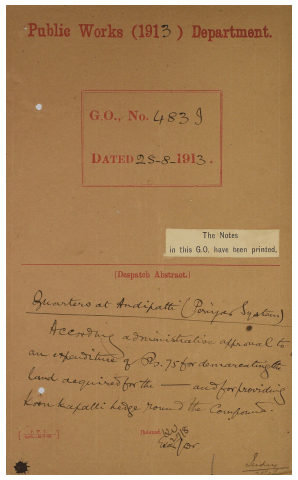 Public Works (1913) Department.
G.O., No. 483 I
DATED 28-8-1913.
The Notes
in this G.O. have been printed.
(Despatch Abstract.)
Quarters at Andipatti (Periyar System)
According administrative approval to
an expenditure of Rs. 75 for demarcating the
land acquired for the — and for providing
hedge round the Compound.